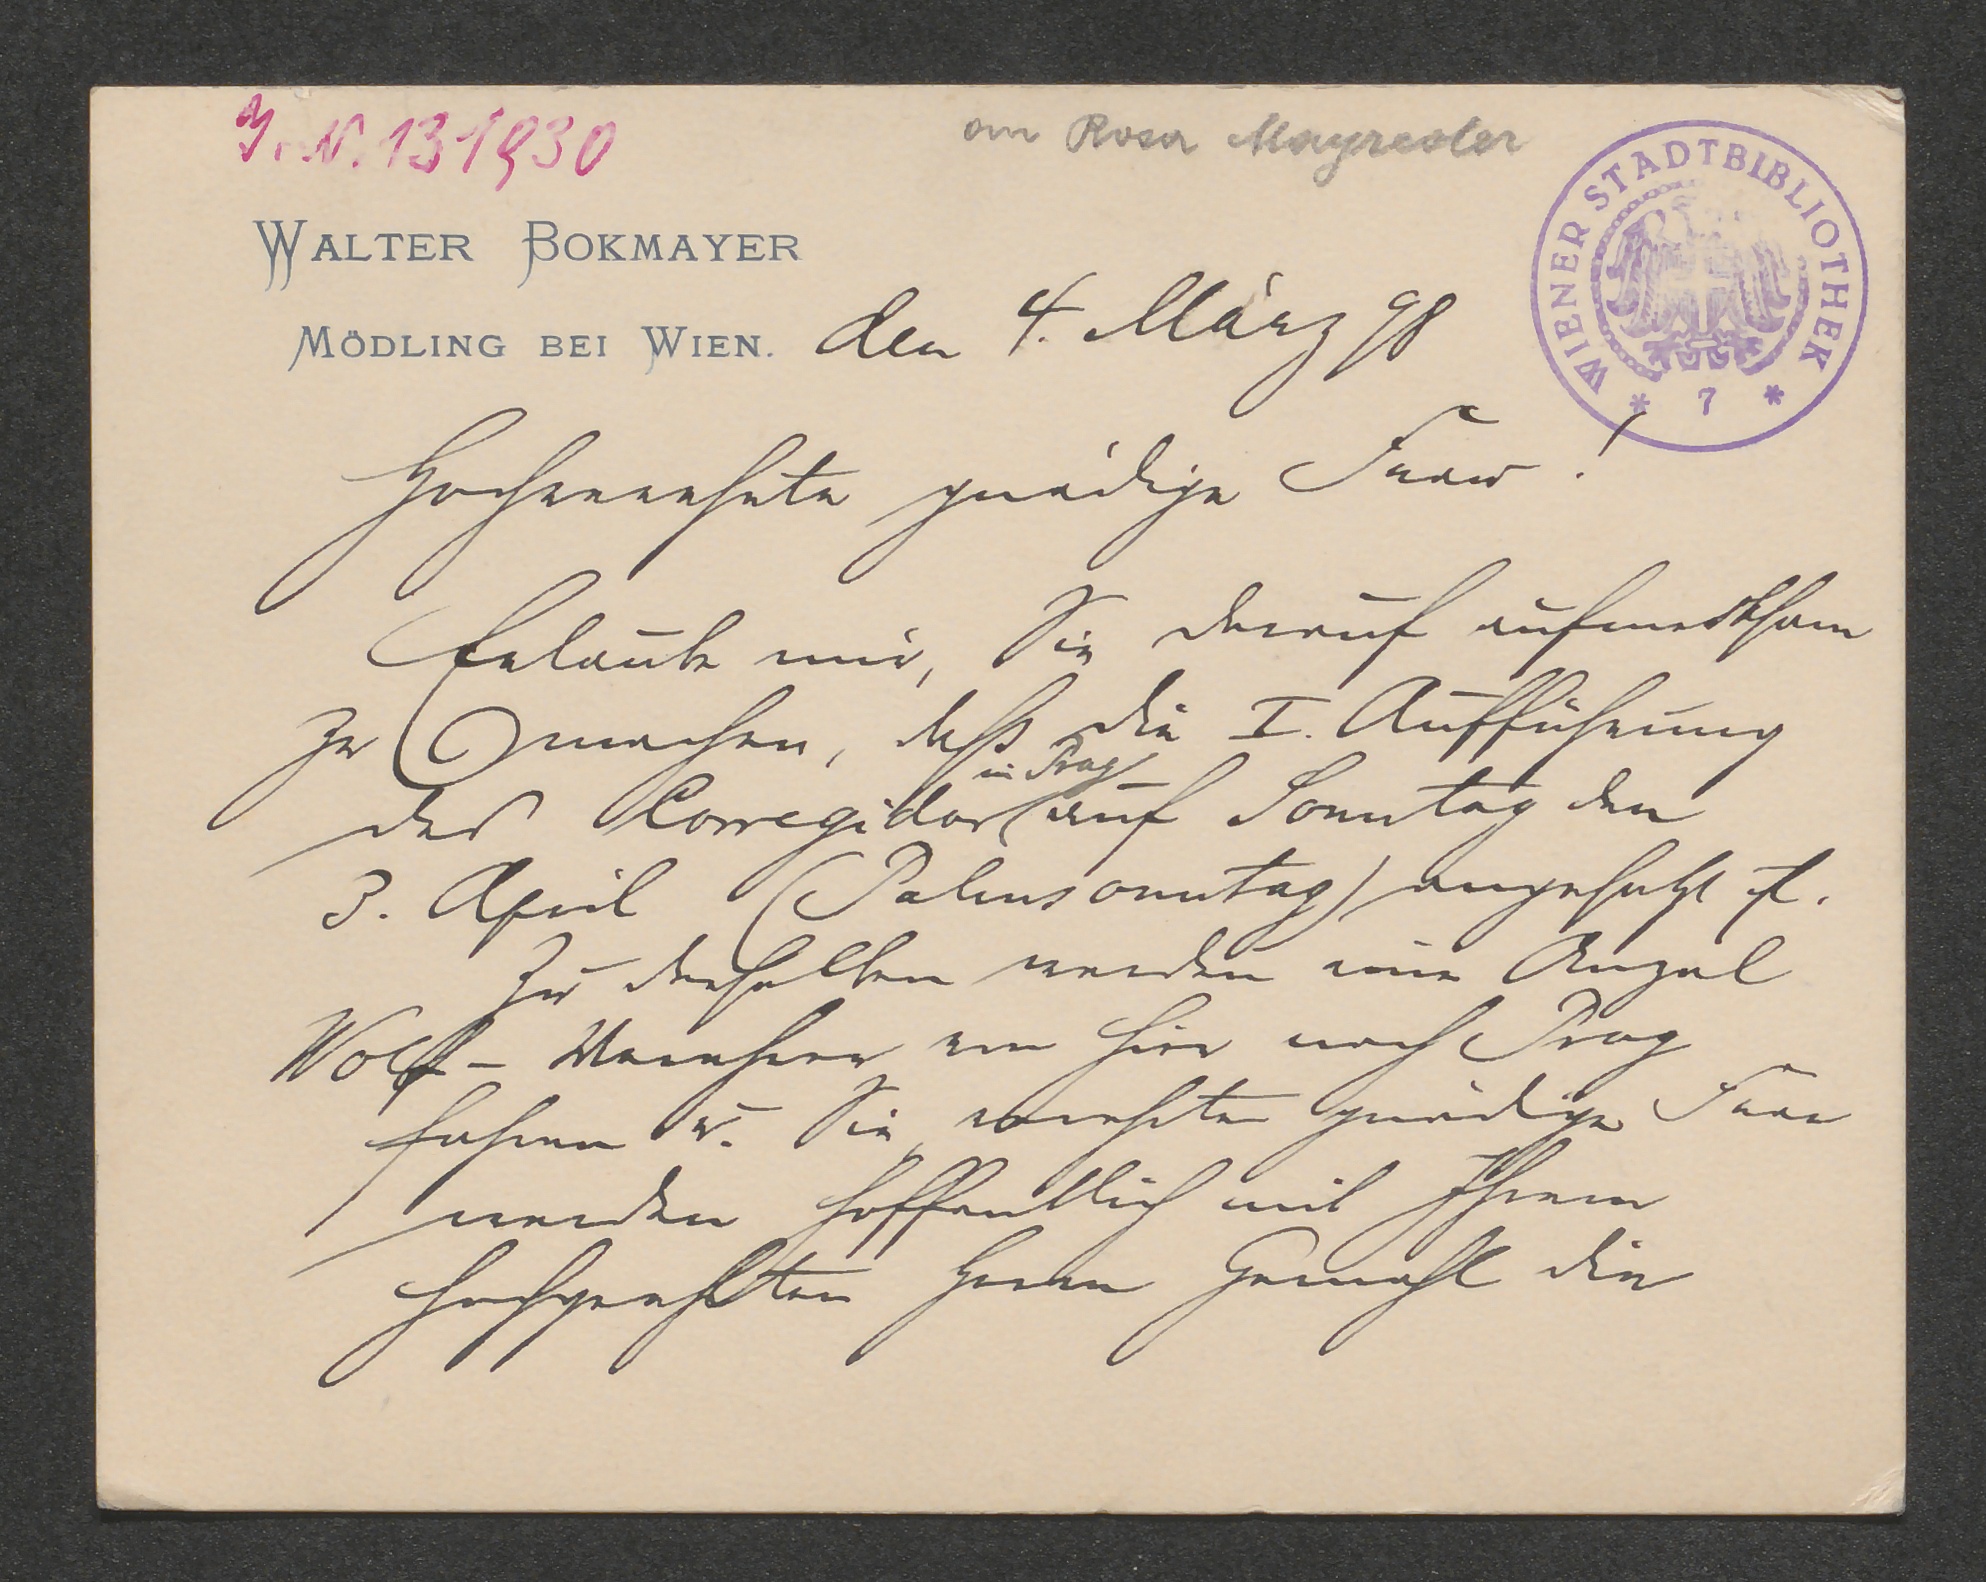 J. N. 131930
an Rosa Mayreder
WIENER STADTBIBLIOTHEK
* 7 *
WALTER BOKMAYER
MÖDLING BEI WIEN.
den 4. März 98
Hochverehrte gnädige Frau!
Erlaube mir, Sie darauf aufmerksam
zu machen, daß die I. Aufführung
in Prag
des Corregidor auf Sonntag den
3. April (Palmsonntag) angesetzt ist.
Zu derselben werden eine Anzal
Wolf-Verehrer von hier nach Prag
fahren u. Sie, verehrte gnädige Frau
werden hoffentlich mit Ihrem
hochgeehrten Herrn Gemahl die